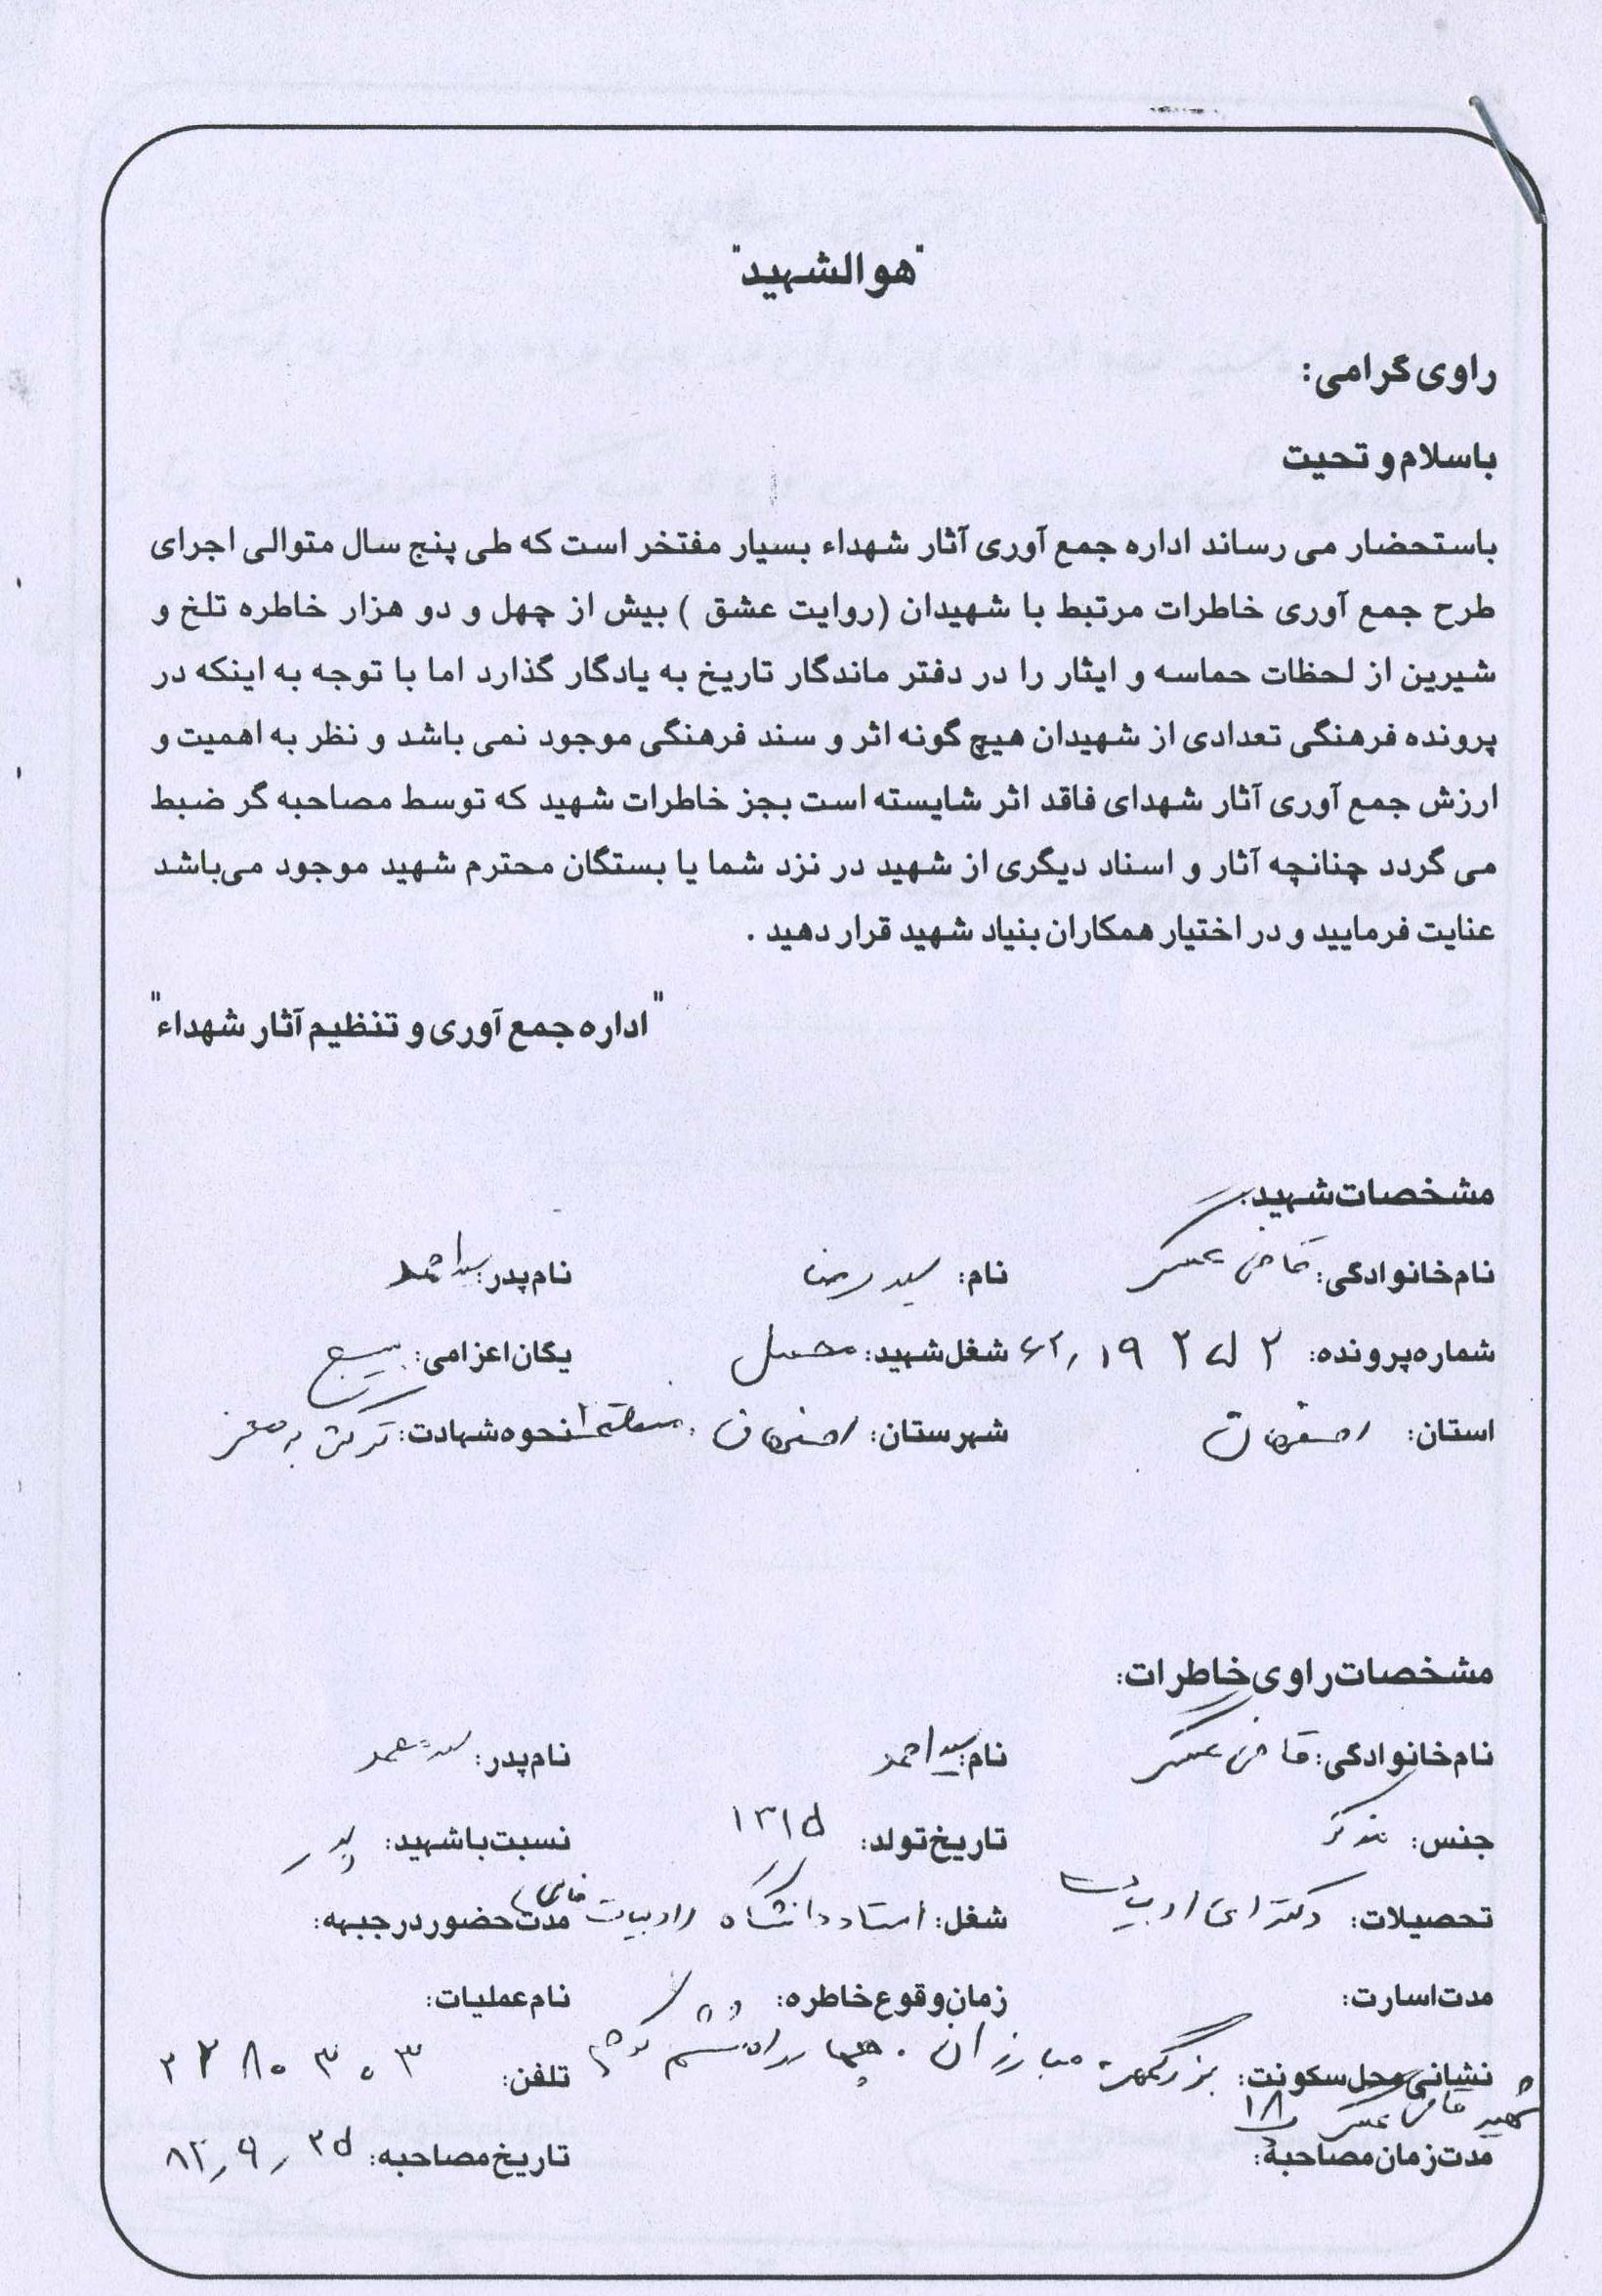 "هوالشهید"
راوی گرامی:
باسلام و تحیت
باستحضار می رساند اداره جمع آوری آثار شهداء بسیار مفتخر است که طی پنج سال متوالی اجرای
طرح جمع آوری خاطرات مرتبط با شهیدان (روایت عشق ) بیش از چهل و دو هزار خاطره تلخ و
شیرین از لحظات حماسه و ایثار را در دفتر ماندگار تاریخ به یادگار گذارد اما با توجه به اینکه در
پرونده فرهنگی تعدادی از شهیدان هیچ گونه اثر و سند فرهنگی موجود نمی باشد و نظر به اهمیت و
ارزش جمع آوری آثار شهدای فاقد اثر شایسته است بجز خاطرات شهید که توسط مصاحبه گر ضبط
می گردد چنانچه آثار و اسناد دیگری از شهید در نزد شما یا بستگان محترم شهید موجود می‌باشد
عنایت فرمایید و در اختیار همکاران بنیاد شهید قرار دهید .
"اداره جمع آوری و تنظیم آثار شهداء"
مشخصات شهید:
نام خانوادگی: قاضی عسگر نام: سید رضا نام پدر: سید احمد
شماره پرونده: شغل شهید: محصل یگان اعزامی: بسیج
استان: اصفهان شهرستان: اصفهان، منطقه ۲ نحوه شهادت: ترکش به مغز
مشخصات راوی خاطرات:
نام خانوادگی: قاضی عسگر نام: سید احمد نام پدر: سید محمد
جنس: مذکر تاریخ تولد: ۱۳۱۵ نسبت با شهید: پدر
تحصیلات: دکترای ادبیات شغل: استاد دانشگاه ادبیات فارسی مدت حضور در جبهه:
مدت اسارت: زمان وقوع خاطره: نام عملیات:
نشانی محل سکونت: بزرگمهر، مبارزان، چهارراه ششم تلفن: ۲۲۸۰۳۰۳
شهید قاضی عسگر ۱۸
مدت زمان مصاحبه: تاریخ مصاحبه: ۸۲٫۹٫۲۵